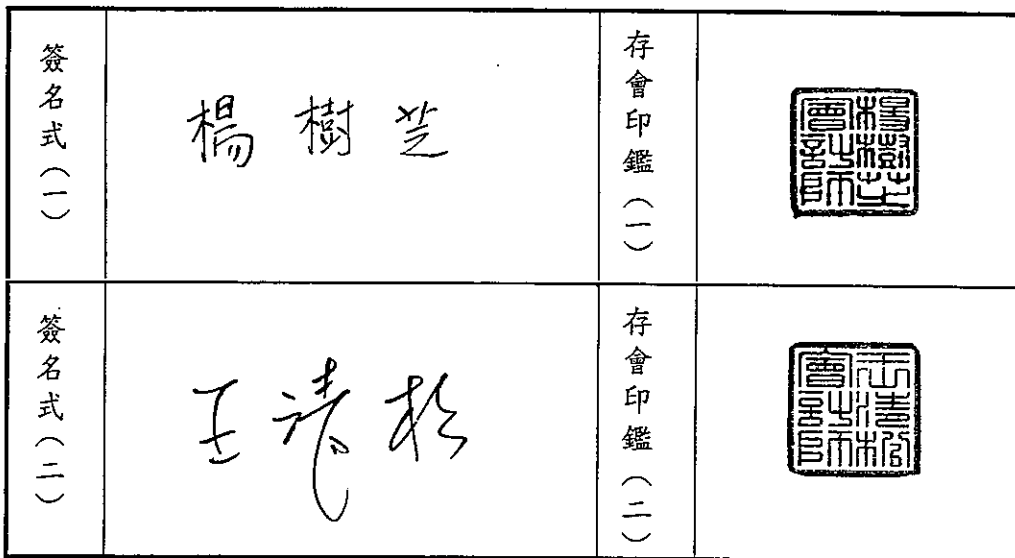 簽名式(一)
楊樹芝
存會印鑑(一)
楊樹芝
會計師
簽名式(二)
王清松
存會印鑑(二)
王清松
會計師